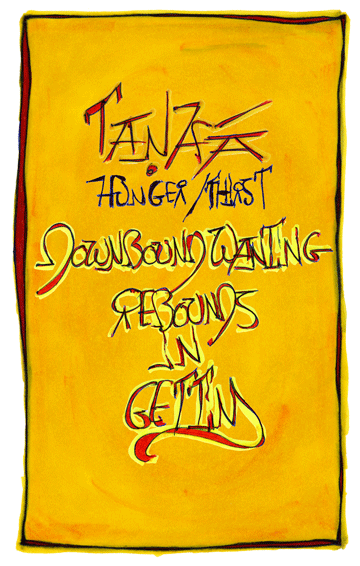 TAṆHĀ
HUNGER/THIRST
DOWNBOUND WANTING
REBOUNDS
IN
GETTING